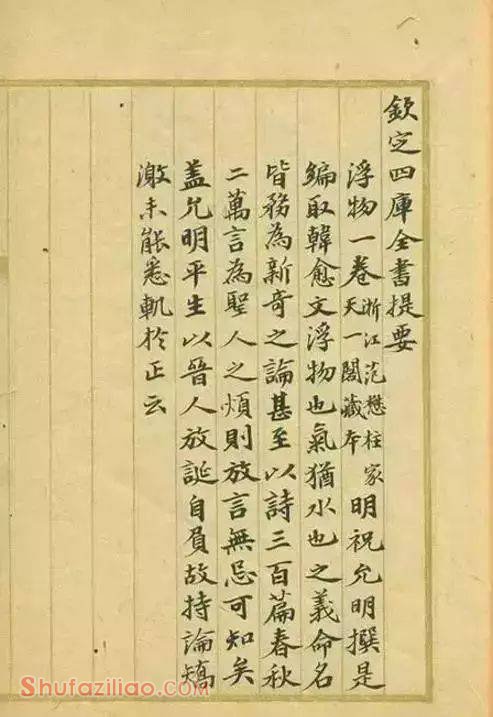 欽定四庫全書提要
浮物一卷浙江范懋柱家天一閣藏本明祝允明撰是
編取韓愈文浮物也氣猶水也之義命名
皆務為新奇之論甚至以詩三百篇春秋
二萬言為聖人之煩則放言無忌可知矣
盖允明平生以晉人放誕自負故持論矯
激未能悉軌於正云
Shufaziliao.com